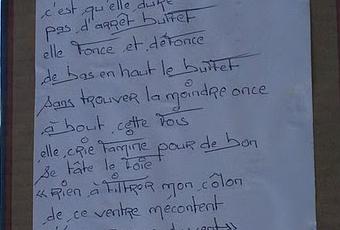 c'est qu'elle dure
pas d'arrêt buffet
elle fonce et défonce
de bas en haut le buffet
sans trouver la moindre once
à bout cette fois
elle crie famine pour de bon
se tâte le foie
« Rien à filtrer mon côlon
de ce ventre mécontent